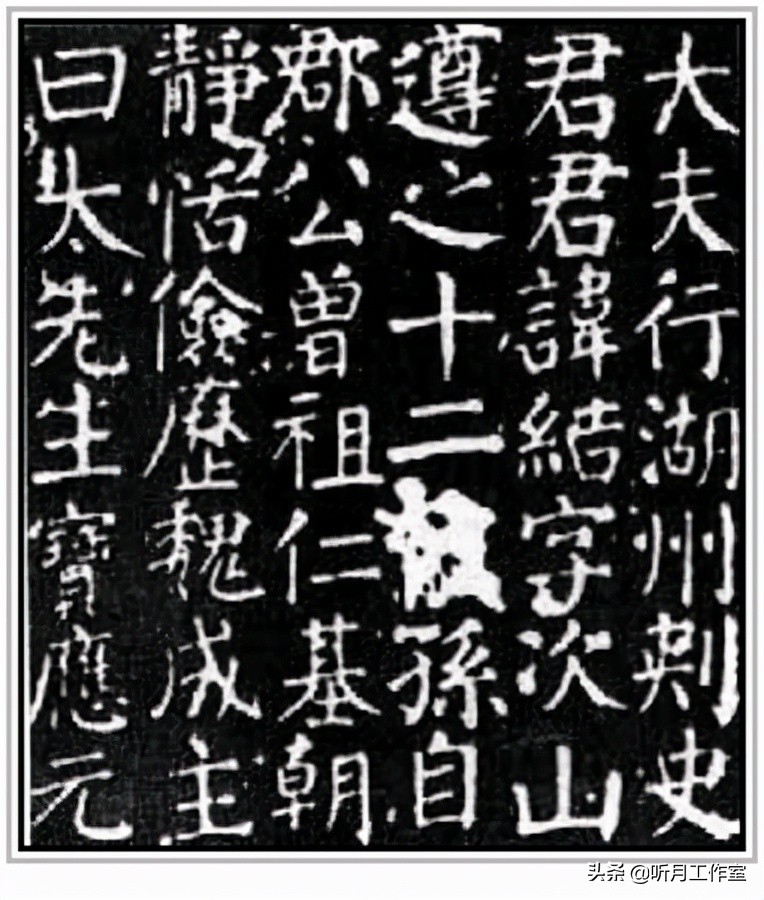 大夫行湖州刺史
君君諱結字次山
遵之十二孫自
郡公曾祖仁基朝
靜恬儉歷魏成主
曰太先生寶應元
头条 @听月工作室